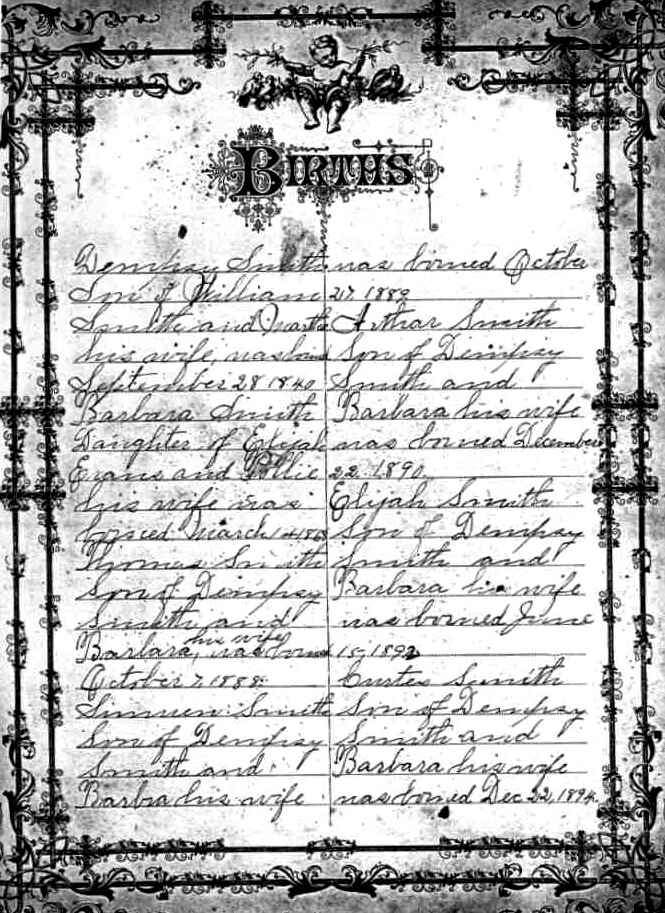 BIRTHS
Dempsy Smith
Son of William
Smith and Martha
his wife, was born
September 28 1840
Barbara Smith
Daughter of Elijah
Evans and Pollie
his wife was
borned March
Thomas Smith
Son of Dempsy
Smith and
Barbara, his wife, was borned
October 7, 1888
Smith
Son of Dempsy
Smith and
Barbra his wife
was borned October
27, 1889
Arthar Smith
Son of Dempsy
Smith and
Barbara his wife
was borned December
22 1890
Elijah Smith
Son of Dempsy
Smith and
Barbara his wife
was borned June
15, 1892
Curtes Smith
Son of Dempsy
Smith and
Barbara his wife
was borned Dec 22, 1894